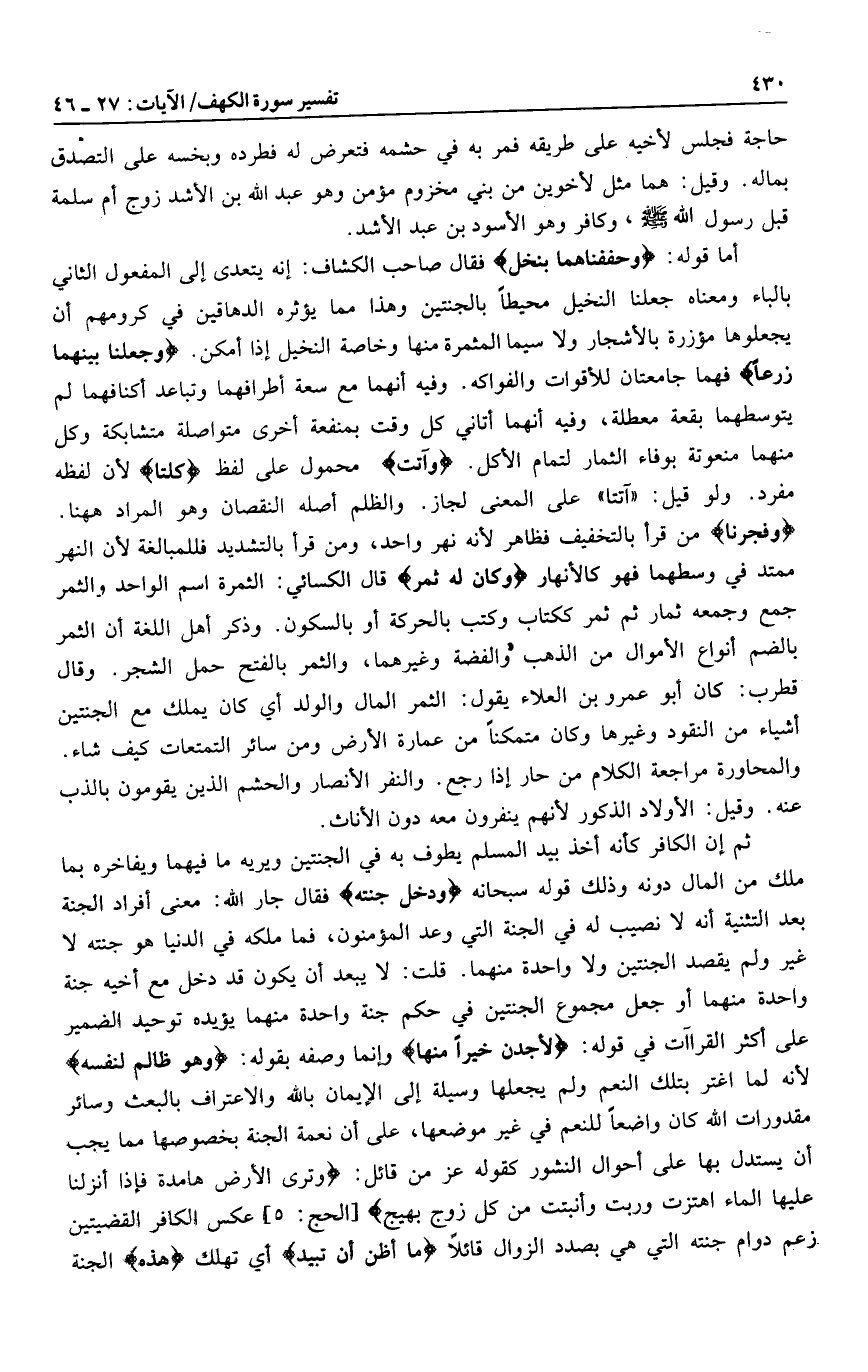 ٤٣٠
تفسير سورة الكهف/ الآيات: ٢٧ - ٤٦
حاجة فجلس لأخيه على طريقه فمر به في حشمه فتعرض له فطرده وبخسه على التصدق
بماله. وقيل: هما مثل لأخوين من بني مخزوم مؤمن وهو عبد الله بن الأشد زوج أم سلمة
قبل رسول الله ﷺ ، وكافر وهو الأسود بن عبد الأشد.
أما قوله: ﴿وحففناهما بنخل﴾ فقال صاحب الكشاف: إنه يتعدى إلى المفعول الثاني
بالباء ومعناه جعلنا النخيل محيطاً بالجنتين وهذا مما يؤثره الدهاقين في كرومهم أن
يجعلوها مؤزرة بالأشجار ولا سيما المثمرة منها وخاصة النخيل إذا أمكن. ﴿وجعلنا بينهما
زرعاً﴾ فهما جامعتان للأقوات والفواكه. وفيه أنهما مع سعة أطرافهما وتباعد أكنافهما لم
يتوسطهما بقعة معطلة، وفيه أنهما أتاني كل وقت بمنفعة أخرى متواصلة متشابكة وكل
منهما منعوتة بوفاء الثمار لتمام الأكل. ﴿وآتت﴾ محمول على لفظ ﴿كلتا﴾ لأن لفظه
مفرد. ولو قيل: «آتتا» على المعنى لجاز. والظلم أصله النقصان وهو المراد ههنا.
﴿وفجرنا﴾ من قرأ بالتخفيف فظاهر لأنه نهر واحد، ومن قرأ بالتشديد فللمبالغة لأن النهر
ممتد في وسطهما فهو كالأنهار ﴿وكان له ثمر﴾ قال الكسائي: الثمرة اسم الواحد والثمر
جمع وجمعه ثمار ثم ثمر ككتاب وكتب بالحركة أو بالسكون. وذكر أهل اللغة أن الثمر
بالضم أنواع الأموال من الذهب والفضة وغيرهما، والثمر بالفتح حمل الشجر. وقال
قطرب: كان أبو عمرو بن العلاء يقول: الثمر المال والولد أي كان يملك مع الجنتين
أشياء من النقود وغيرها وكان متمكناً من عمارة الأرض ومن سائر التمتعات كيف شاء.
والمحاورة مراجعة الكلام من حار إذا رجع. والنفر الأنصار والحشم الذين يقومون بالذب
عنه. وقيل: الأولاد الذكور لأنهم ينفرون معه دون الأناث.
ثم إن الكافر كأنه أخذ بيد المسلم يطوف به في الجنتين ويريه ما فيهما ويفاخره بما
ملك من المال دونه وذلك قوله سبحانه ﴿ودخل جنته﴾ فقال جار الله: معنى أفراد الجنة
بعد التثنية أنه لا نصيب له في الجنة التي وعد المؤمنون، فما ملكه في الدنيا هو جنته لا
غير ولم يقصد الجنتين ولا واحدة منهما. قلت: لا يبعد أن يكون قد دخل مع أخيه جنة
واحدة منهما أو جعل مجموع الجنتين في حكم جنة واحدة منهما يؤيده توحيد الضمير
على أكثر القراآت في قوله: ﴿لأجدن خيراً منها﴾ وإنما وصفه بقوله: ﴿وهو ظالم لنفسه﴾
لأنه لما اغتر بتلك النعم ولم يجعلها وسيلة إلى الإيمان بالله والاعتراف بالبعث وسائر
مقدورات الله كان واضعاً للنعم في غير موضعها، على أن نعمة الجنة بخصوصها مما يجب
أن يستدل بها على أحوال النشور كقوله عز من قائل: ﴿وترى الأرض هامدة فإذا أنزلنا
عليها الماء اهتزت وربت وأنبتت من كل زوج بهيج﴾ [الحج: ٥] عكس الكافر القضيتين
زعم دوام جنته التي هي بصدد الزوال قائلاً ﴿ما أظن أن تبيد﴾ أي تهلك ﴿هذه﴾ الجنة